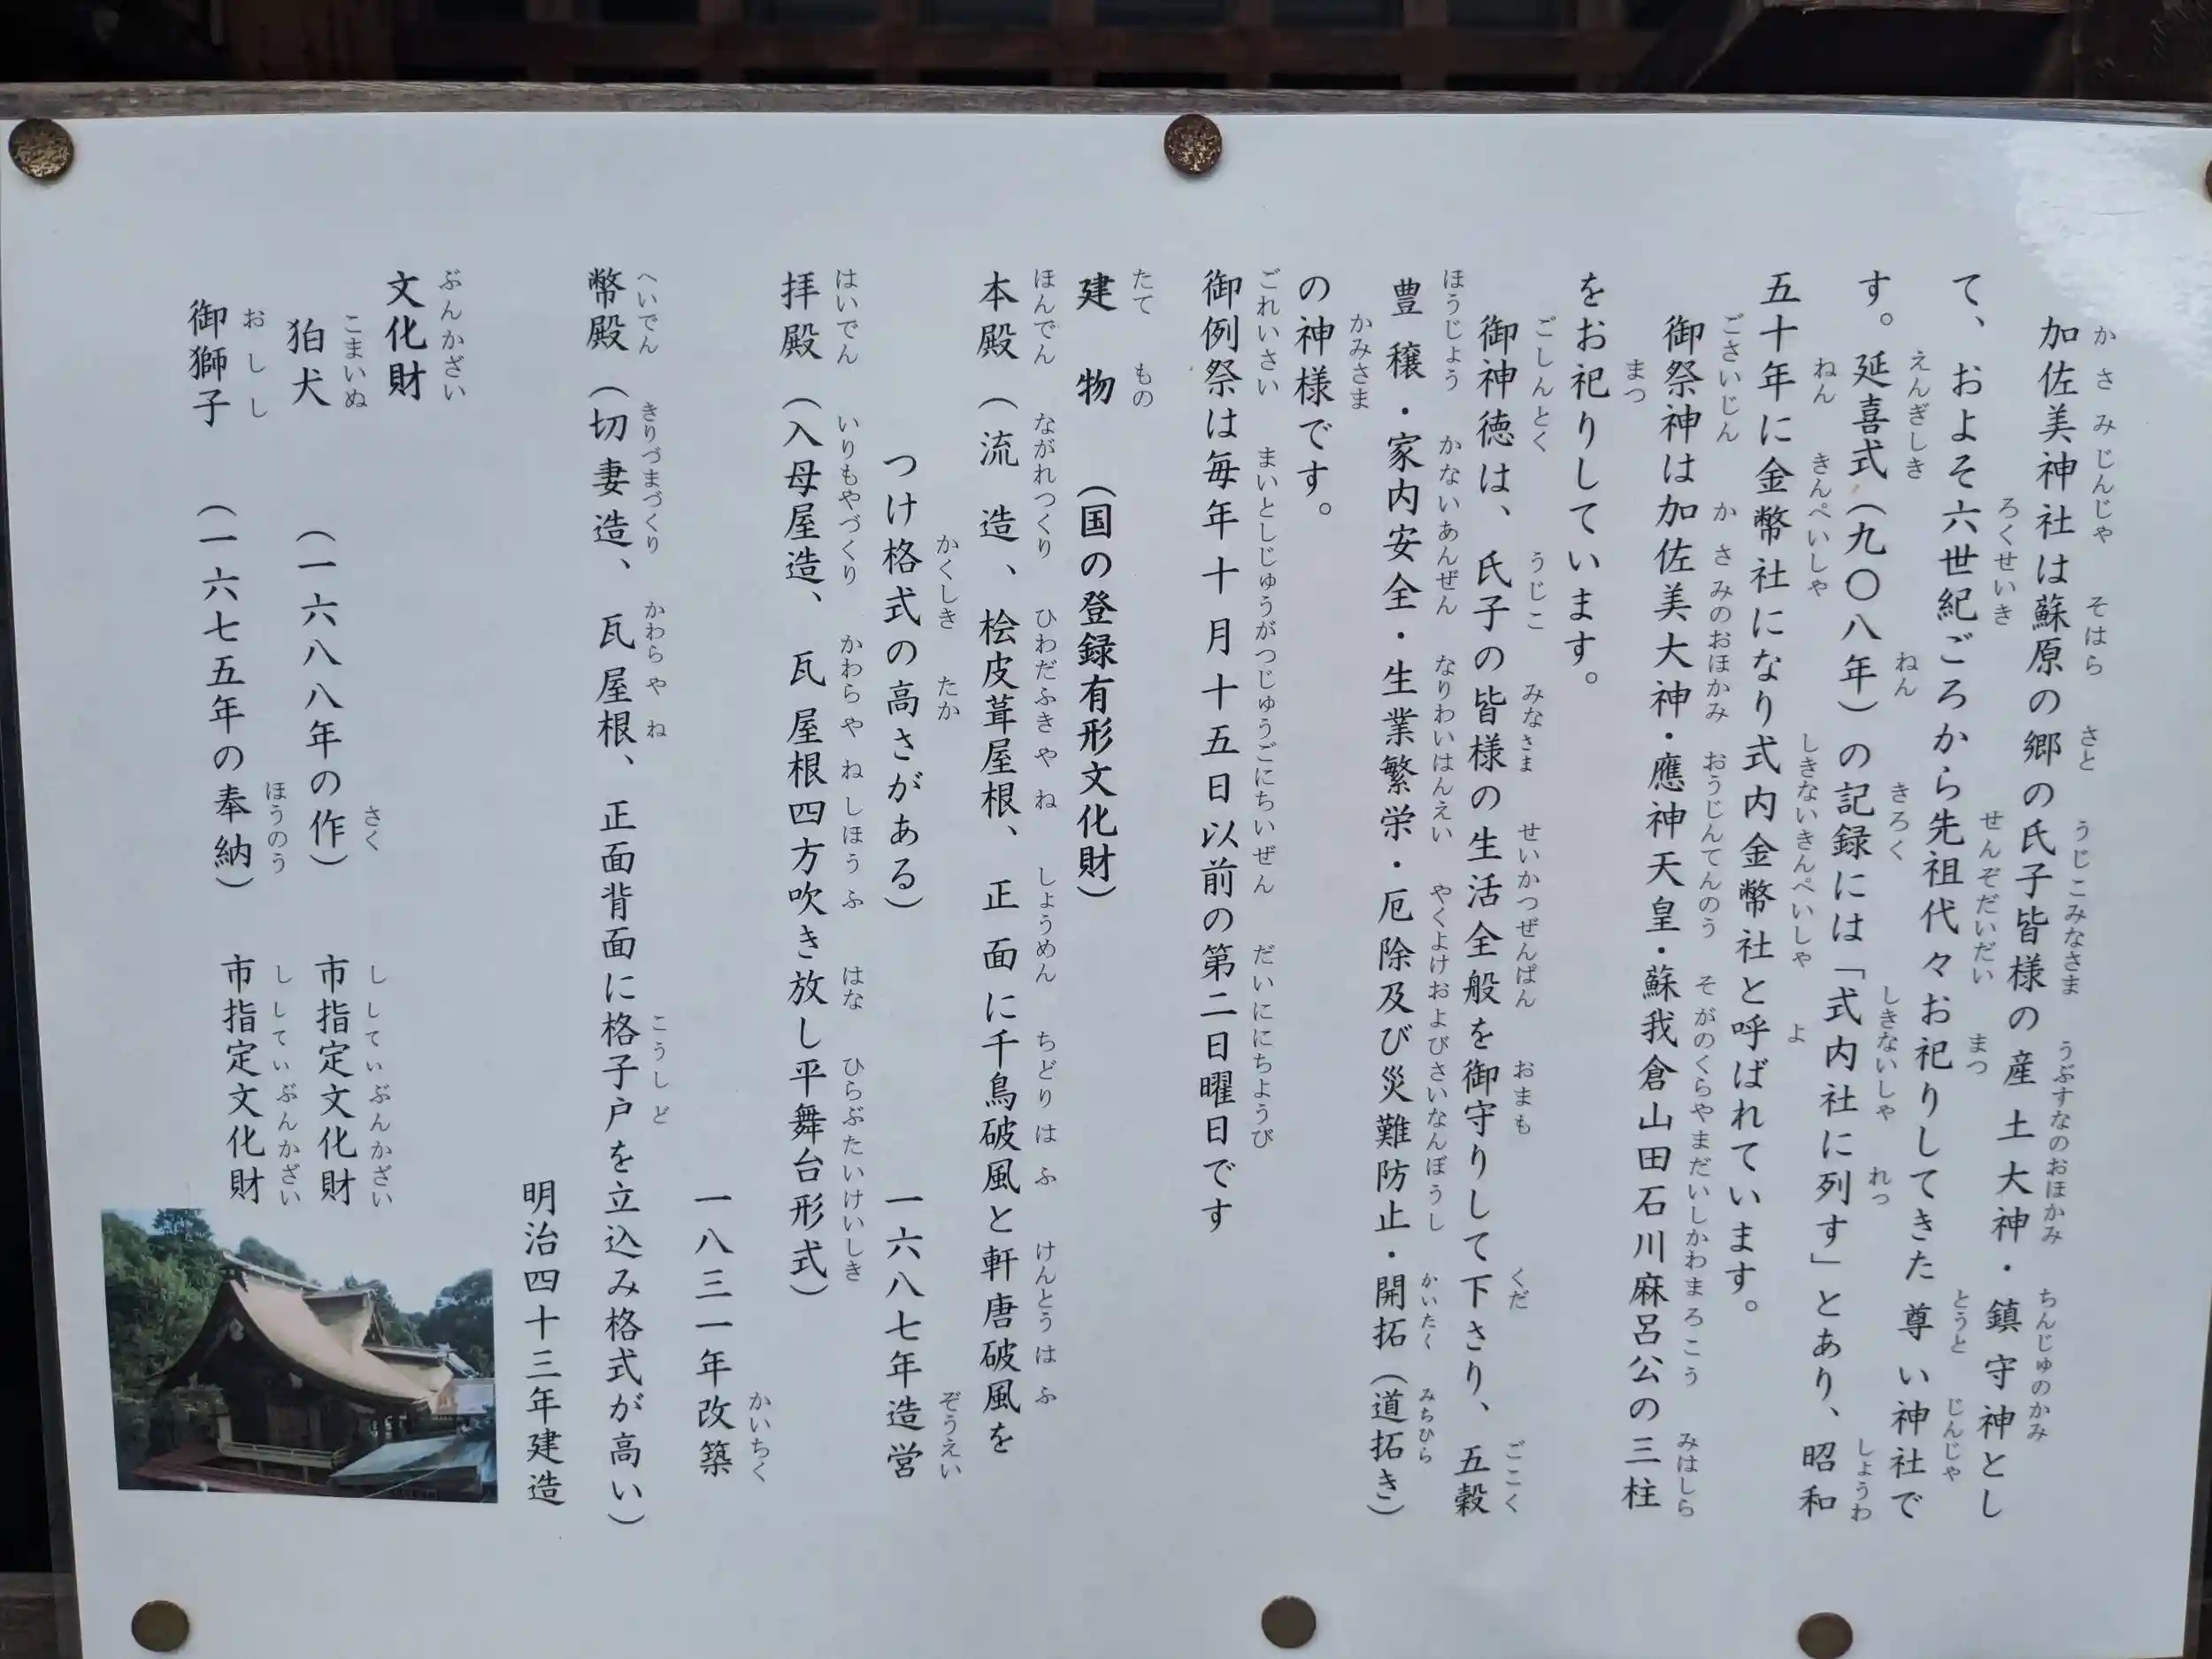 加佐美神社は蘇原の郷の氏子皆様の産土大神・鎮守神とし
て、およそ六世紀ごろから先祖代々お祀りしてきた尊い神社で
す。延喜式（九〇八年）の記録には「式内社に列す」とあり、昭和
五十年に金幣社になり式内金幣社と呼ばれています。
御祭神は加佐美大神・應神天皇・蘇我倉山田石川麻呂公の三柱
をお祀りしています。
御神徳は、氏子の皆様の生活全般を御守りして下さり、五穀
豊穣・家内安全・生業繁栄・厄除及び災難防止・開拓（道拓き）
の神様です。
御例祭は毎年十月十五日以前の第二日曜日です
建物　（国の登録有形文化財）
本殿（流造、桧皮葺屋根、正面に千鳥破風と軒唐破風を
つけ格式の高さがある）　一六八七年造営
拝殿（入母屋造、瓦屋根四方吹き放し平舞台形式）
一八三一年改築
幣殿（切妻造、瓦屋根、正面背面に格子戸を立込み格式が高い）
明治四十三年建造
文化財
狛犬　（一六八八年の作）　市指定文化財
御獅子　（一六七五年の奉納）　市指定文化財